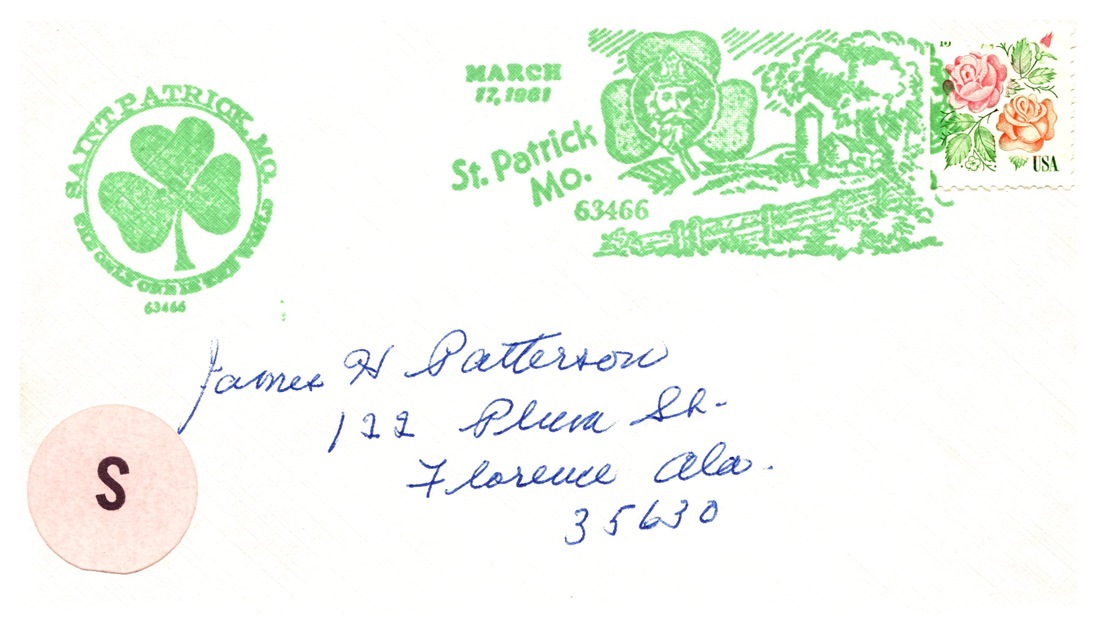 SAINT PATRICK, MO.
THE ONLY ONE IN THE WORLD
63466
MARCH
17, 1981
St. Patrick
Mo.
63466
15
USA
James H Patterson
122 Plum St.
Florence Ala.
35630
S